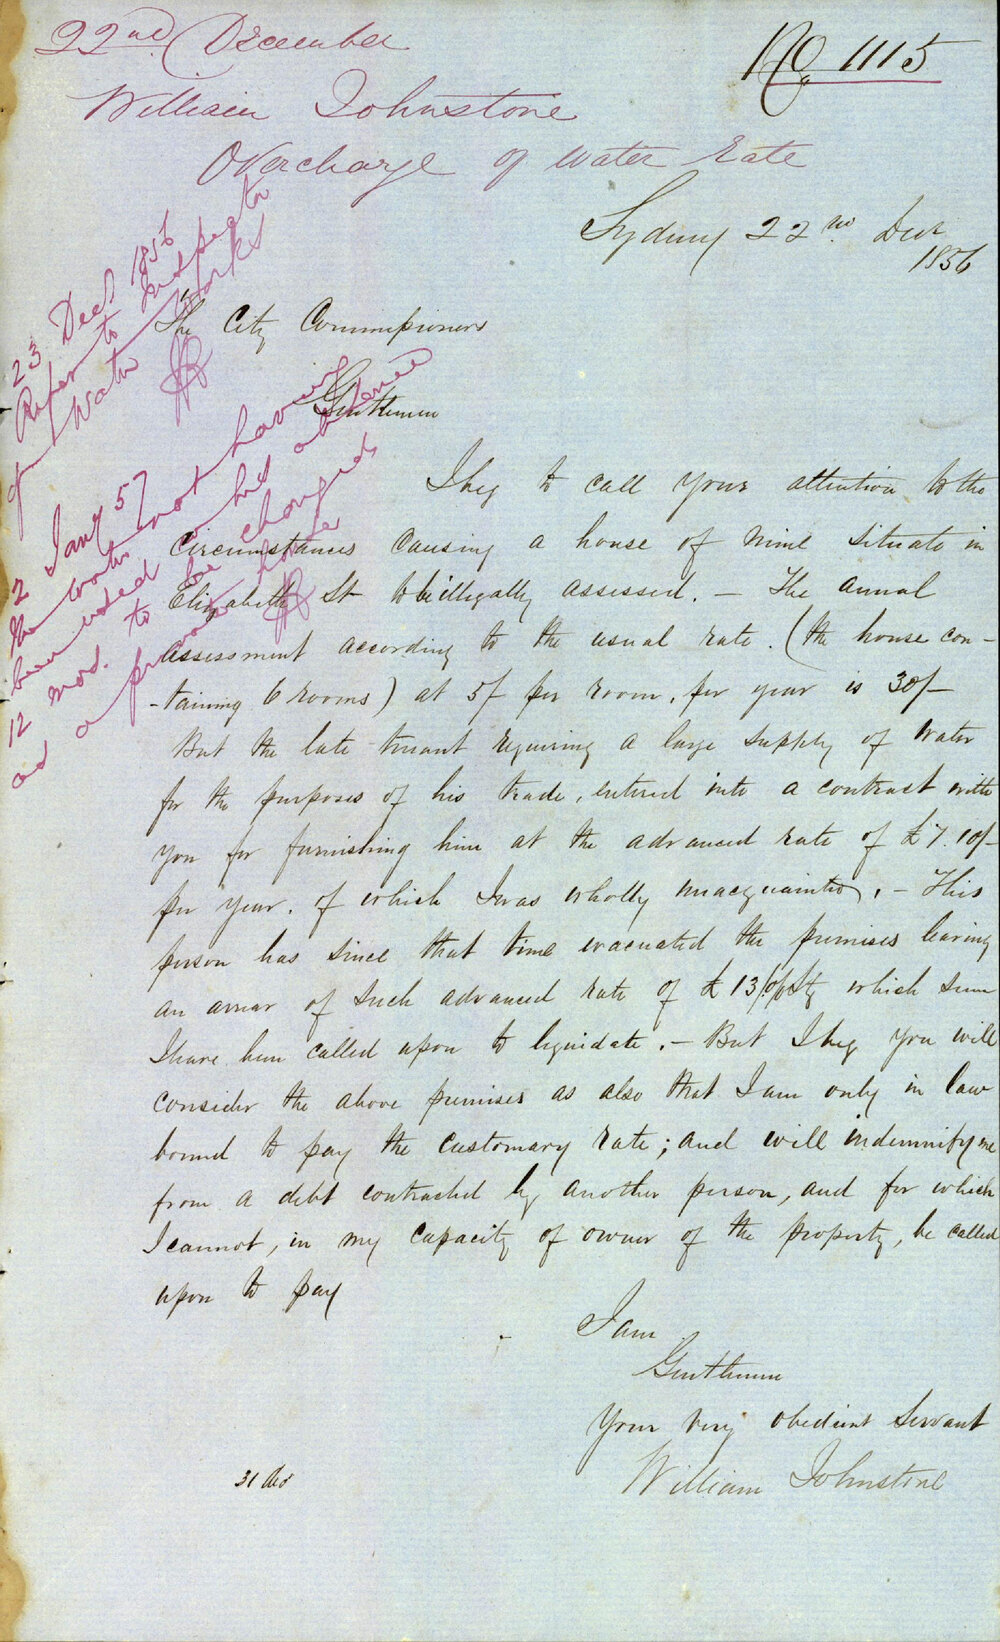 22nd December
No. 1115
William Johnstone
Overcharge of water rate
Sydney 22nd Decr
1856
The City Commissioners
Gentlemen
I beg to call your attention to the
circumstances causing a house of mine situate in
Elizabeth St to be illegally assessed. — The annual
assessment according to the usual rate. (the house con-
-taining 6 rooms) at 5/ per room, per year is 30/-
But the late tenant requiring a large supply of water
for the purposes of his trade, entered into a contract with
you for furnishing him at the advanced rate of £7.10/-
per year. of which I was wholly unacquainted. — This
person has since that time evacuated the premises leaving
an arrear of such advanced rate of £13 Stg which sum
I have been called upon to liquidate. — But I beg you will
consider the above premises as also that I am only in law
bound to pay the customary rate; and will indemnify me
from a debt contracted by another person, and for which
I cannot, in my capacity of owner of the property, be called
upon to pay
I am
Gentlemen
Your very obedient Servant
William Johnstone
31 Dec
23 Decr 1856
Refer to Inspector
of Water Works
2 Jany 57
the water not having
been used in his absence
12 mos. to be charged
as a private house